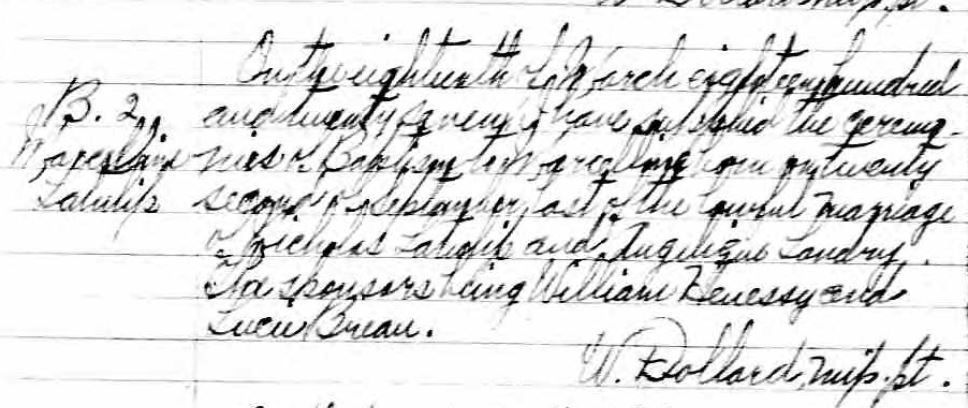 W. Dollard, mip. pt.
On the eighteenth of March eighteen hundred
B. 2 and twenty seven I have supplied the ceremo-
Marcelline nies of Baptism to Marcelline born on twenty
Latulip second of September last of the lawful marriage
of Nicholas Latulip and Angelique Landry.
The sponsors being William Henessy and
Lucie Breau.
W. Dollard, mip. pt.